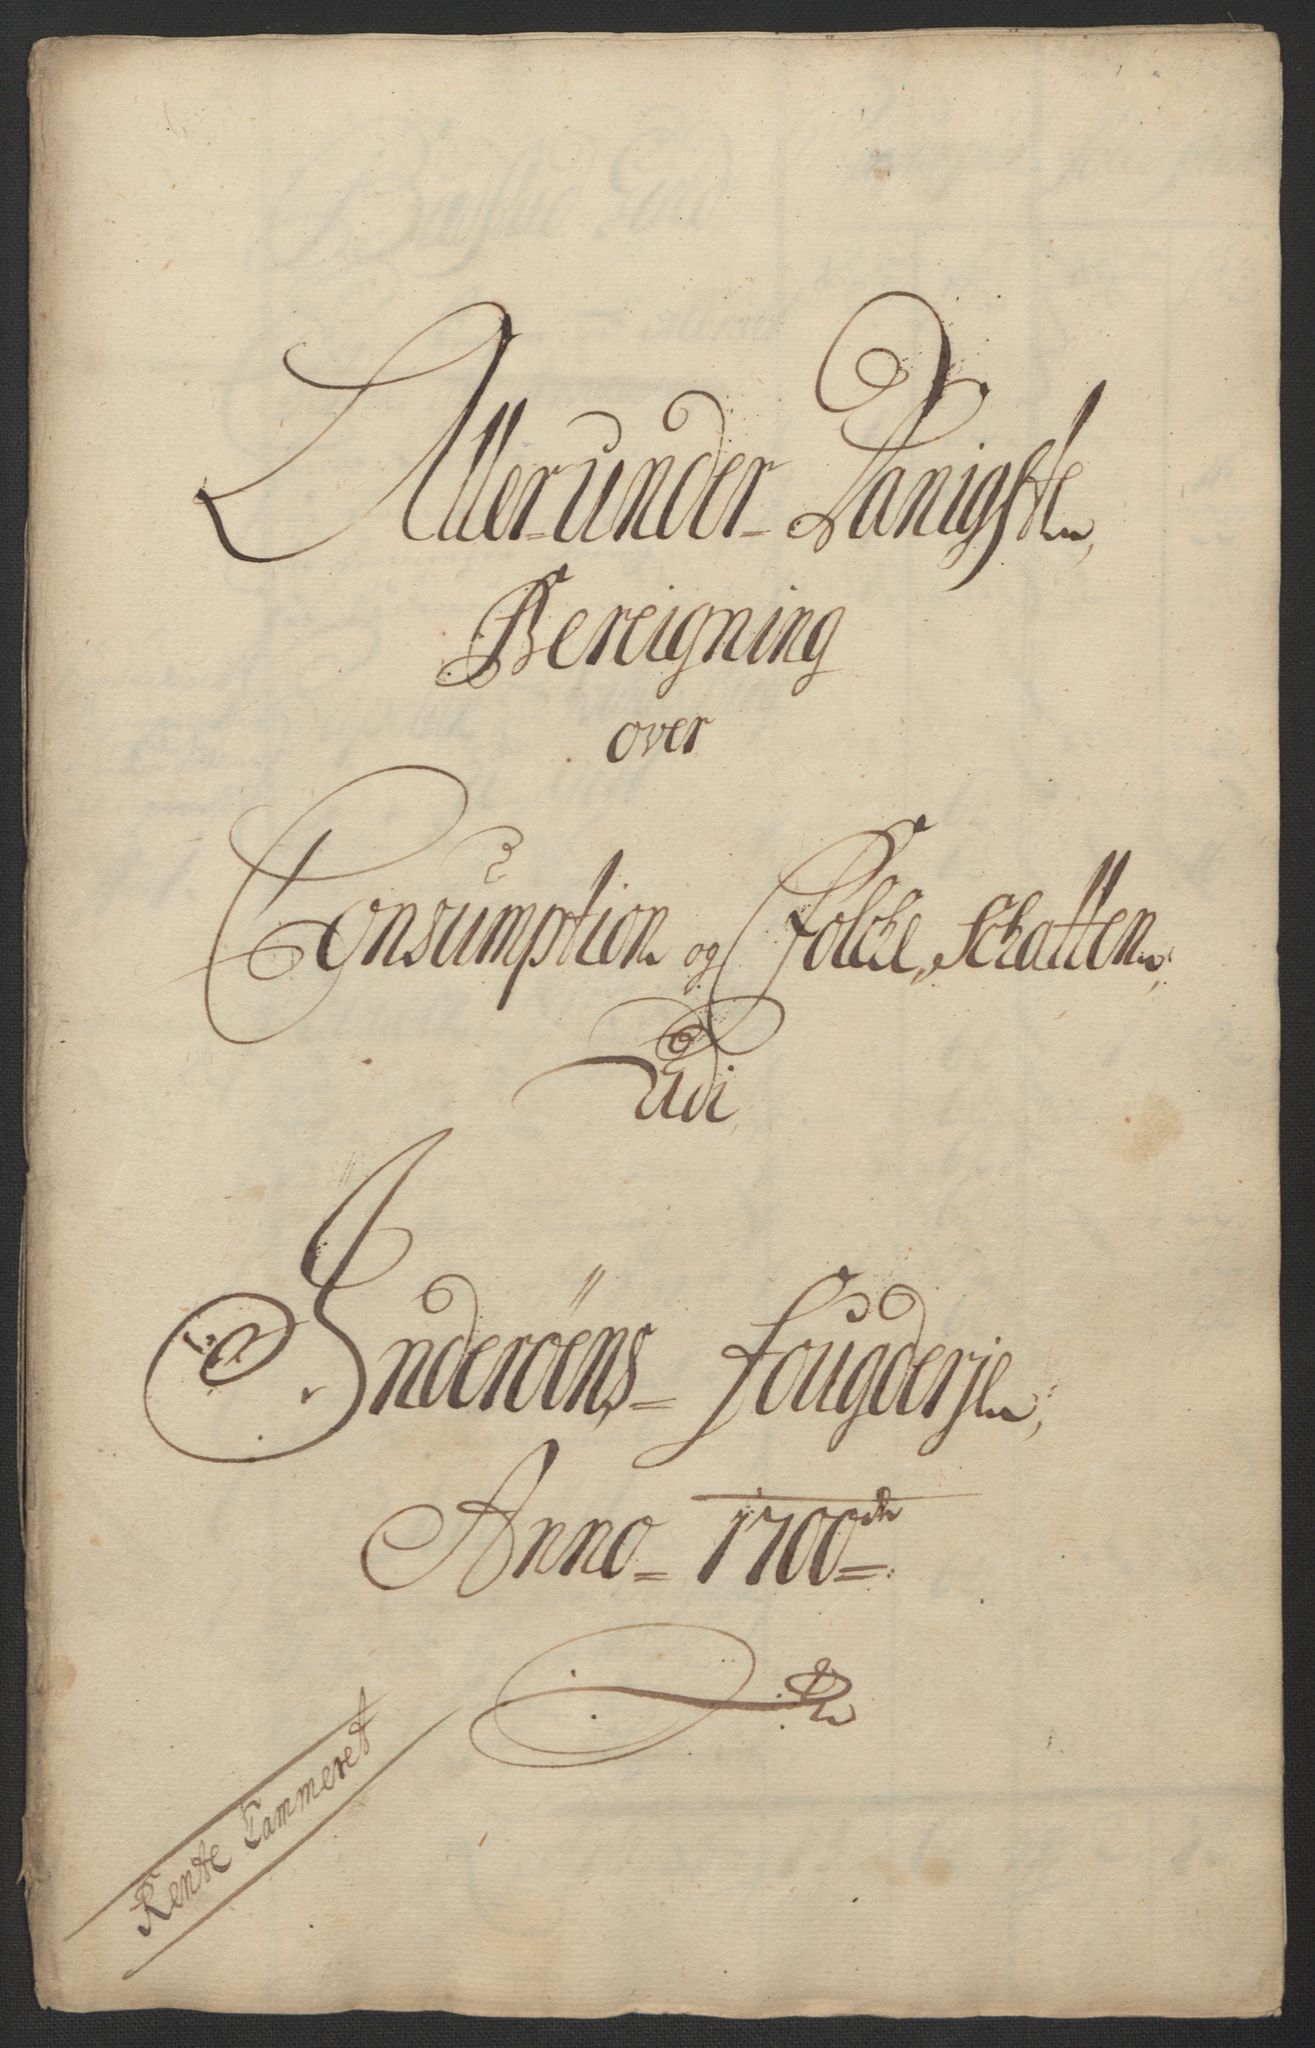 Aller-under-Danigste
Bereigning
over
Consumption og Folche Schatten
Udi
Inderöens Fougderje
Anno 1700de
Rente Cammeret